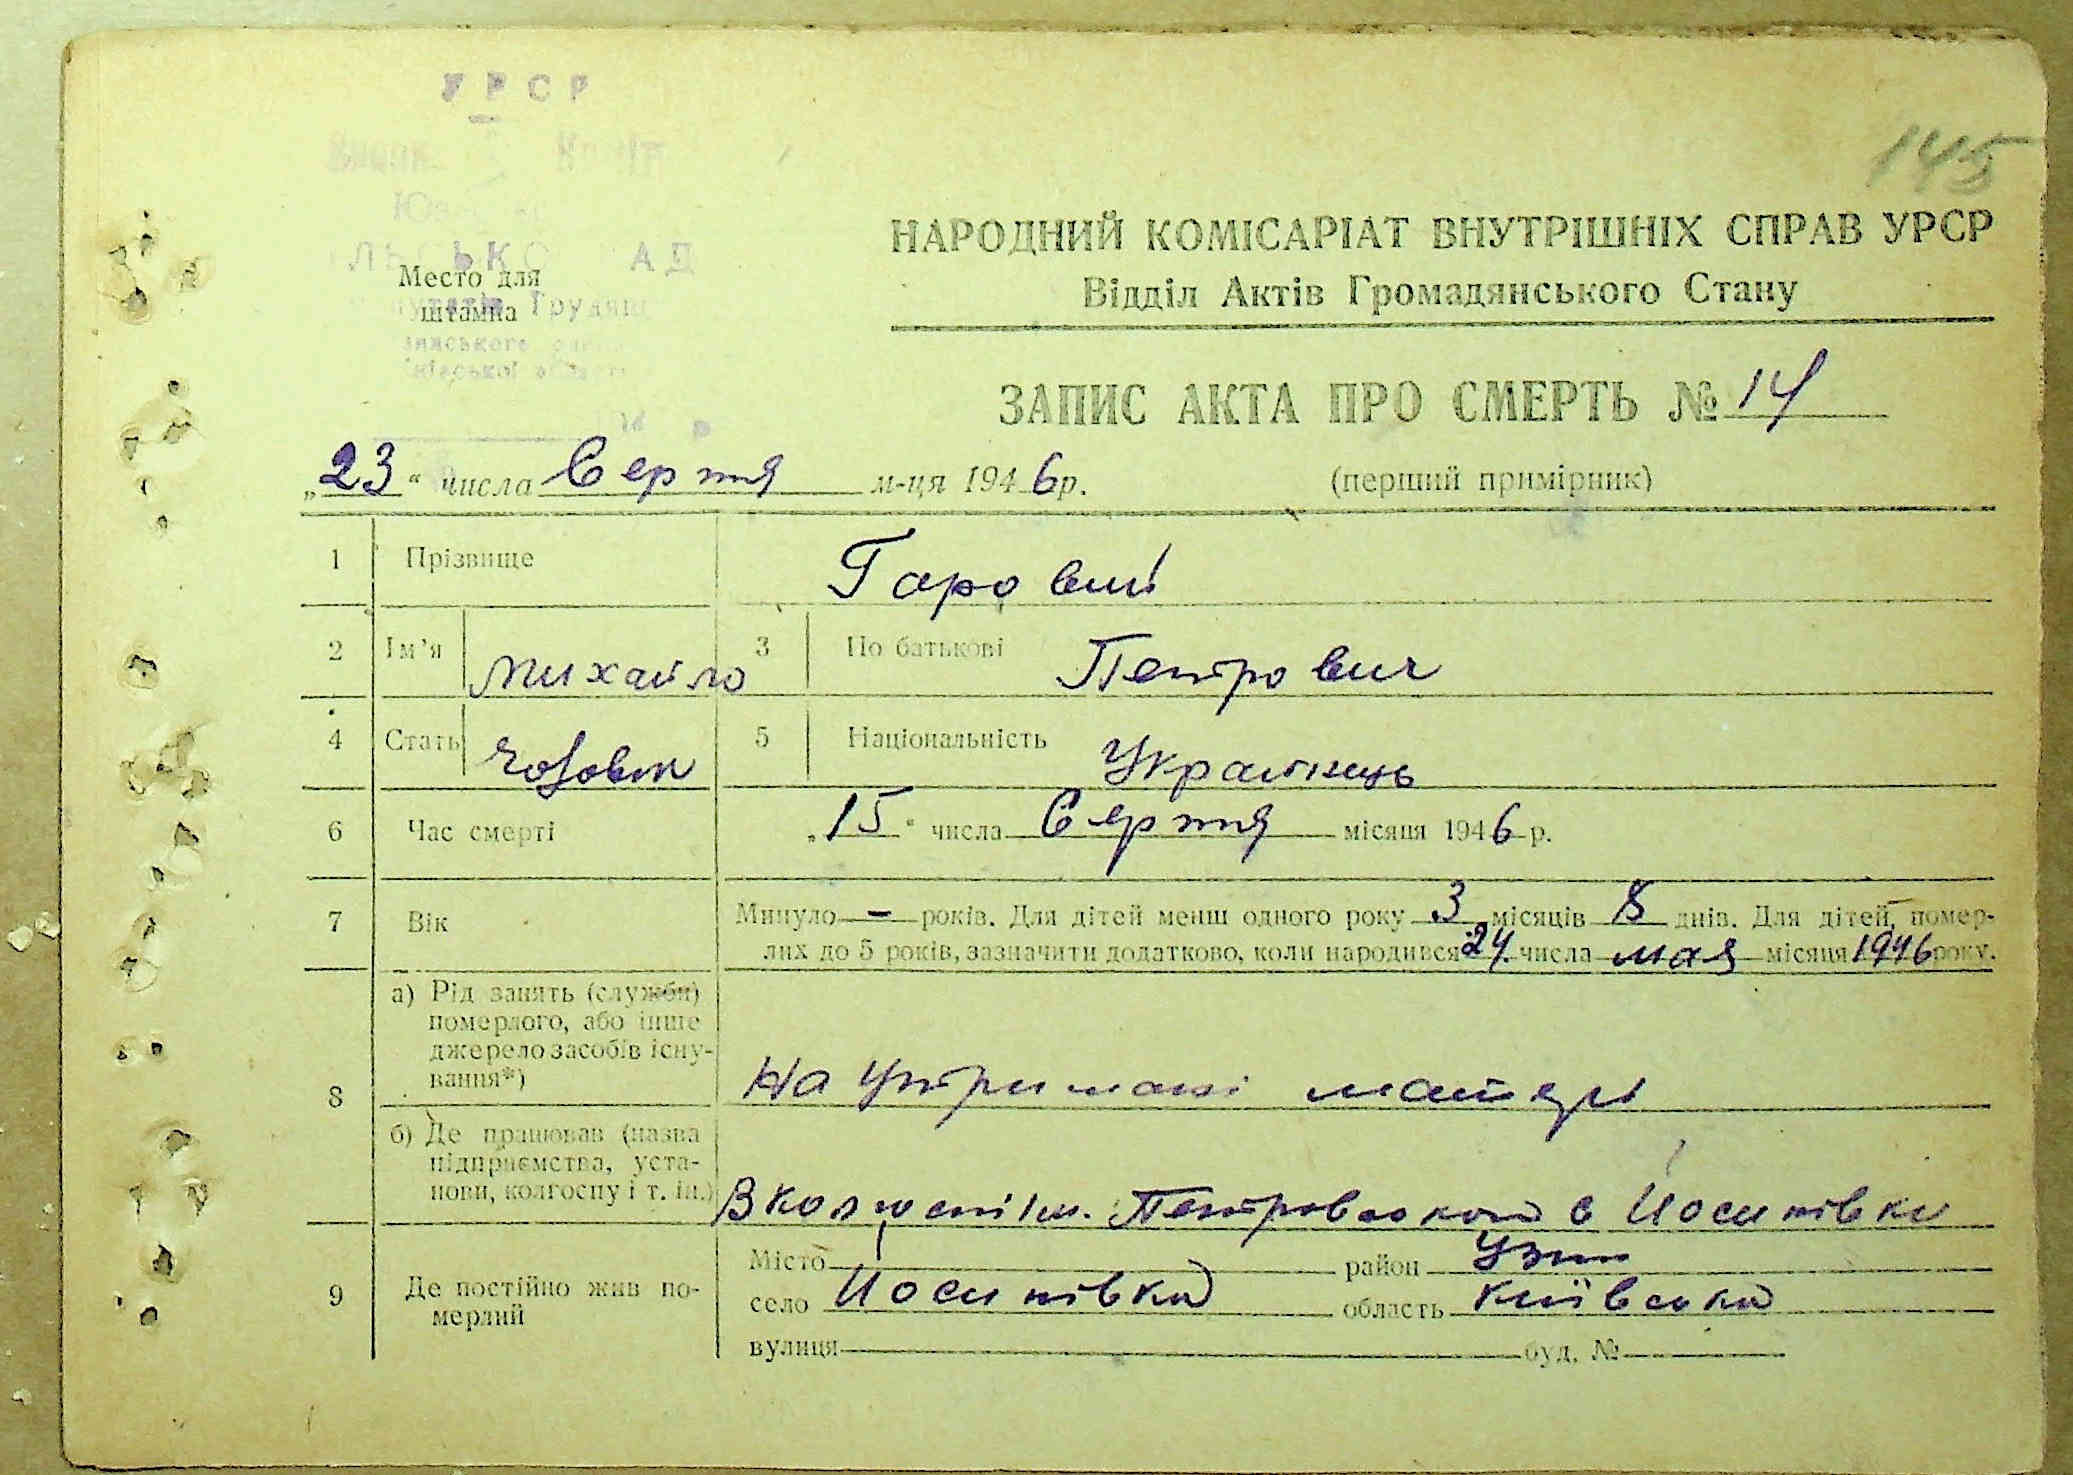 145
УРСР
НАРОДНИЙ КОМІСАРІАТ ВНУТРІШНІХ СПРАВ УРСР
Відділ Актів Громадянського Стану
Место для
штампа
ЗАПИС АКТА ПРО СМЕРТЬ № 14
„23“ числа Серпня м-ця 1946 р. (перший примірник)
1 Прізвище Гаровий
2 Ім'я Михайло 3 По батькові Петрович
4 Стать Чоловік 5 Національність Українець
6 Час смерті „15“ числа Серпня місяця 1946 р.
7 Вік Минуло - років. Для дітей менш одного року 3 місяців 8 днів. Для дітей, помер-
лих до 5 років, зазначити додатково, коли народився 24 числа мая місяця 1946 року.
8 а) Рід занять (служби)
померлого, або інше
джерело засобів існу-
вання*) На утримані матері
б) Де працював (назва
підприємства, уста-
нови, колгоспу і т. ін.) В колгоспі ім. Петровського с Йосипівки
9 Де постійно жив по-
мерлий
Місто район Узин
село Йосипівка область Київська
вулиця буд. №